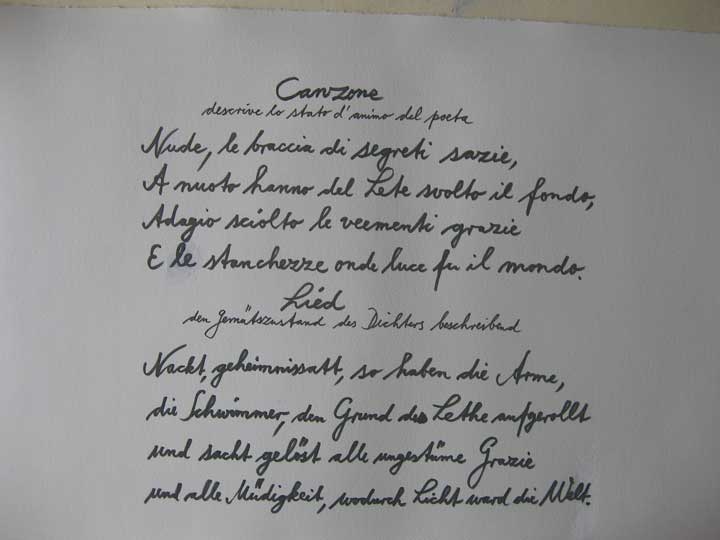 Canzone
descrive lo stato d'animo del poeta
Nude, le braccia di segreti sazie,
A nuoto hanno del Lete svolto il fondo,
Adagio sciolto le veementi grazie
E le stanchezze onde luce fu il mondo.
Lied
den Gemütszustand des Dichters beschreibend
Nackt, geheimnissatt, so haben die Arme,
die Schwimmer, den Grund des Lethe aufgerollt
und sacht gelöst alle ungestüme Grazie
und alle Müdigkeit, wodurch Licht ward die Welt.